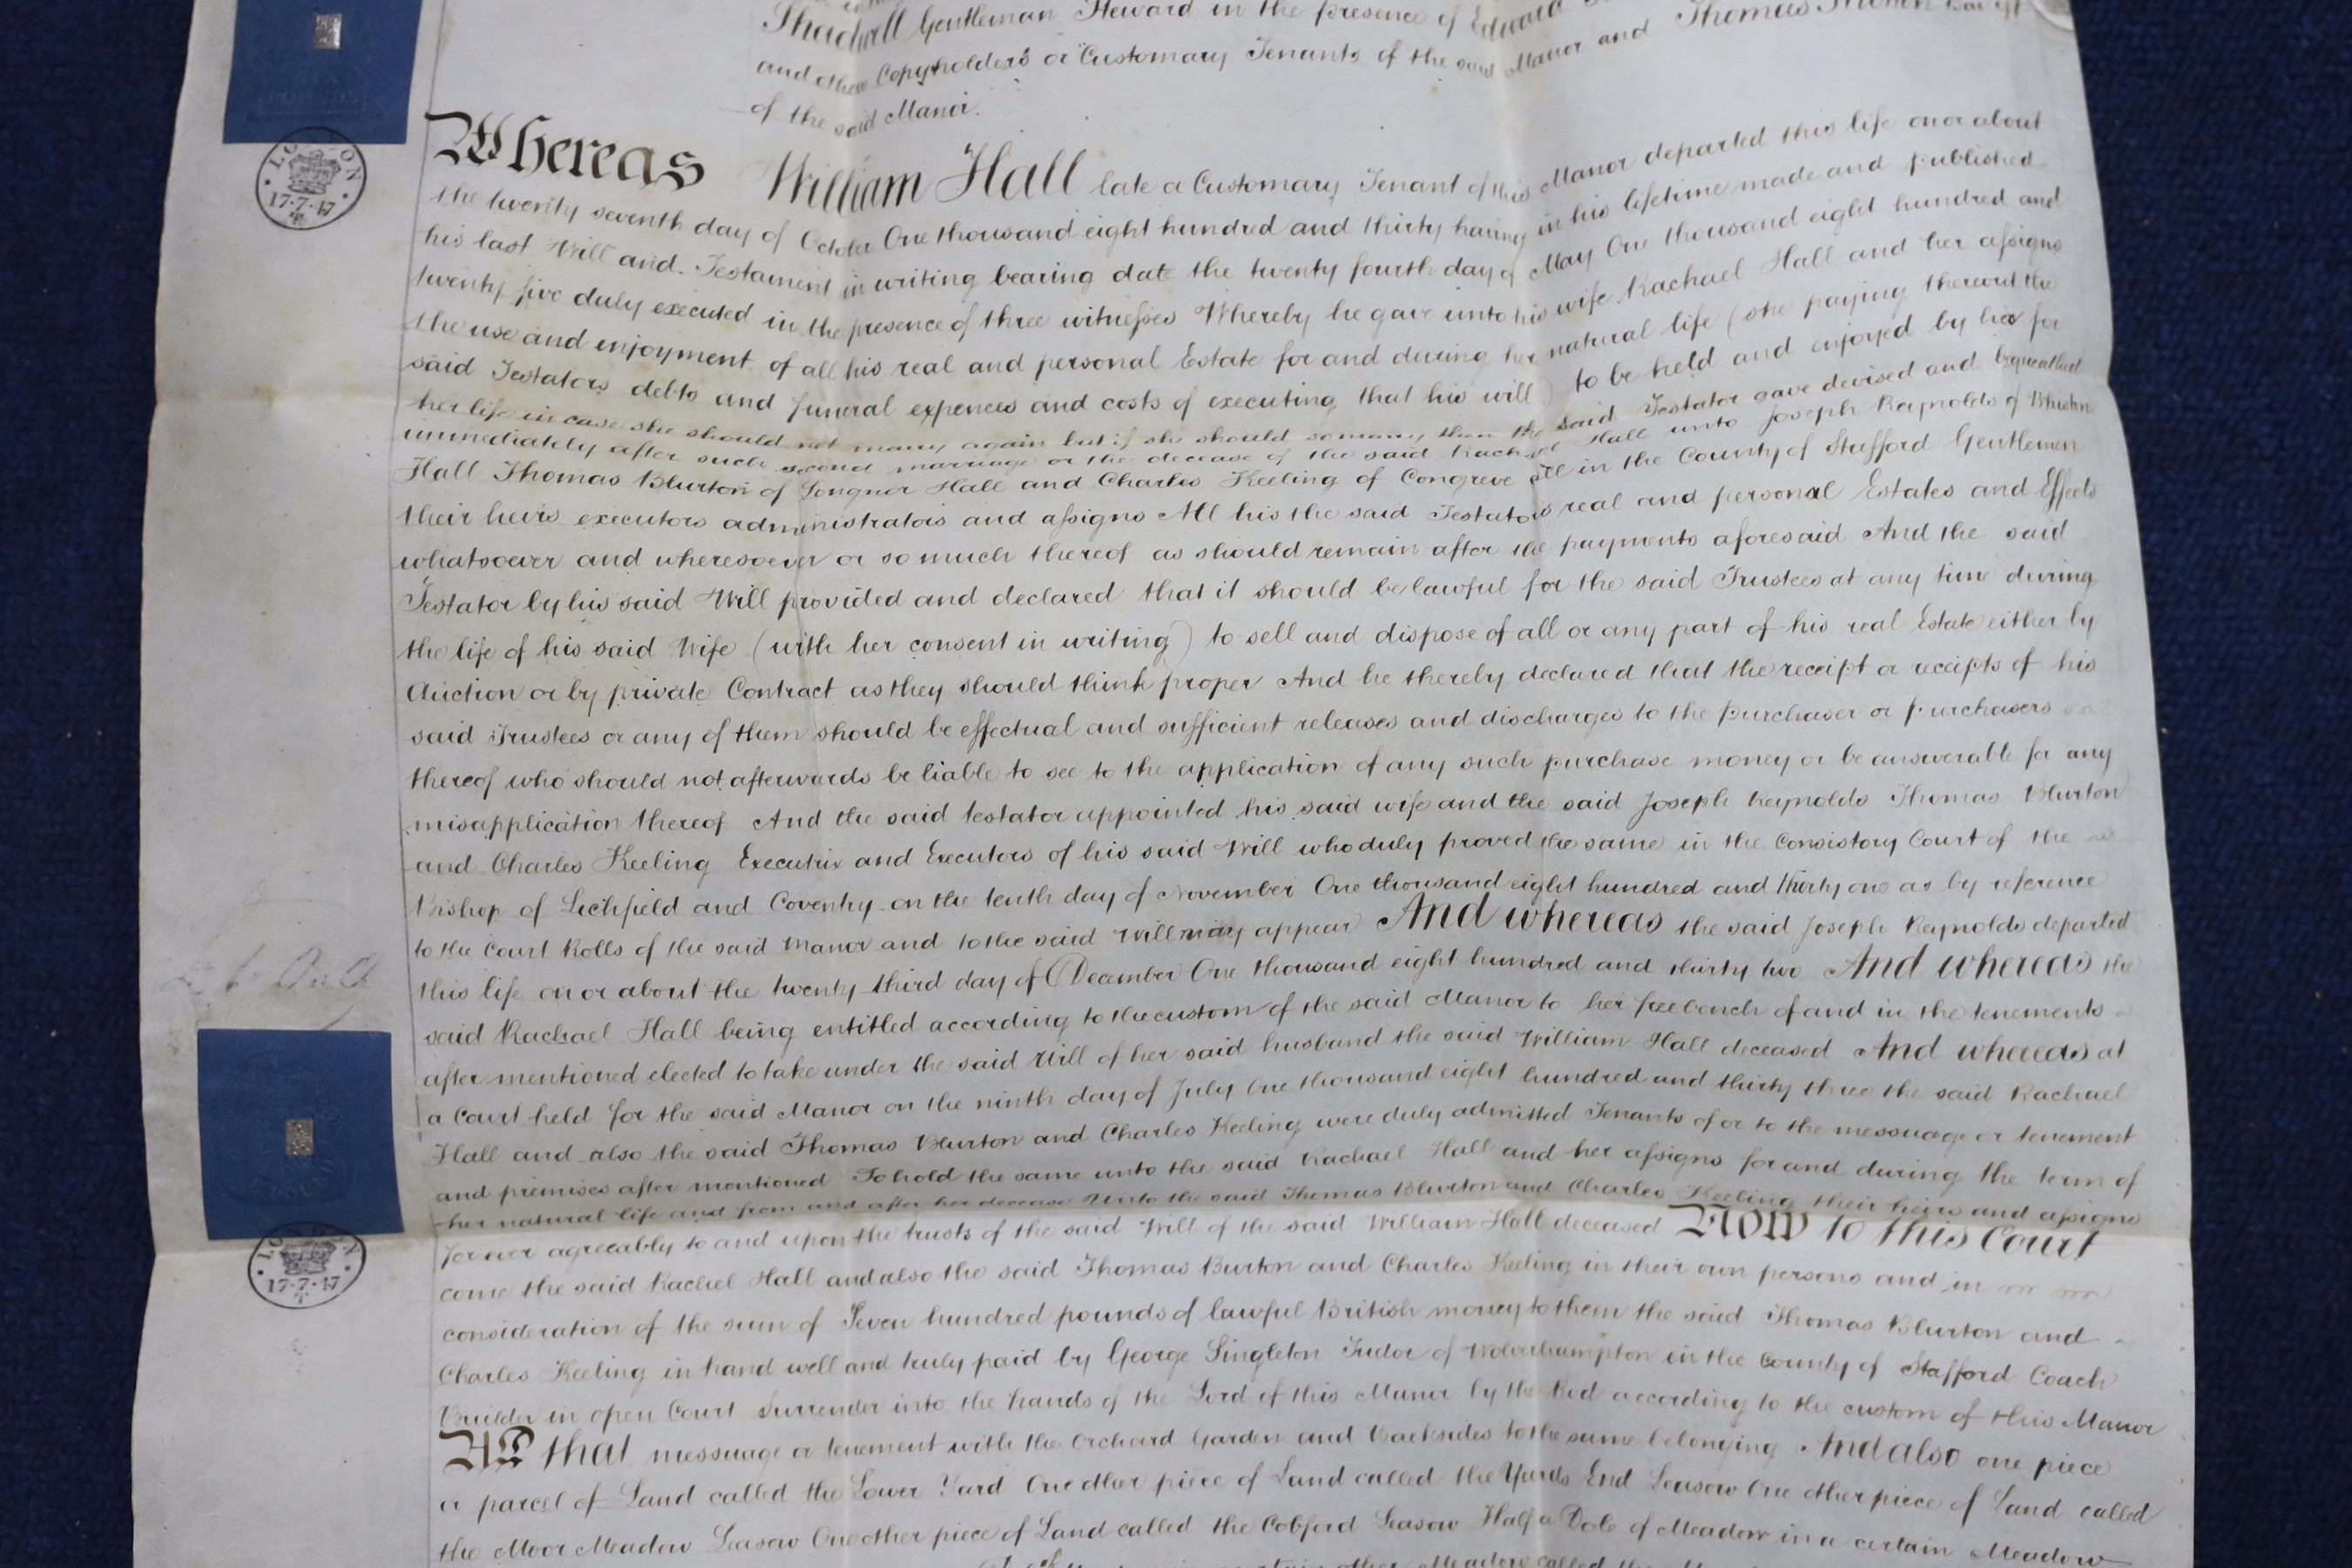 Shadwell Gentleman Steward in the presence of Edward
and other Copyholders or Customary Tenants of the said Manor and Thomas
of the said Manor.
Whereas William Hall late a Customary Tenant of this Manor departed this life on or about
the twenty seventh day of October One thousand eight hundred and thirty having in his lifetime made and published
his last Will and Testament in writing bearing date the twenty fourth day of May One thousand eight hundred and
twenty five duly executed in the presence of three witnesses Whereby he gave unto his wife Rachael Hall and her assigns
the use and enjoyment of all his real and personal Estate for and during her natural life (she paying thereout the
said Testators debts and funeral expences and costs of executing that his will) to be held and enjoyed by her for
her life in case she should not marry again but if she should so marry then the said Testator gave devised and bequeathed
immediately after such second marriage or the decease of the said Rachael Hall unto Joseph Reynolds of Whiston
Hall Thomas Blurton of Longnor Hall and Charles Keeling of Congreve all in the County of Stafford Gentlemen
their heirs executors administrators and assigns All his the said Testators real and personal Estates and Effects
whatsoever and wheresoever or so much thereof as should remain after the payments aforesaid And the said
Testator by his said Will provided and declared that it should be lawful for the said Trustees at any time during
the life of his said Wife (with her consent in writing) to sell and dispose of all or any part of his real Estate either by
Auction or by private Contract as they should think proper And he thereby declared that the receipt or receipts of his
said Trustees or any of them should be effectual and sufficient releases and discharges to the purchaser or purchasers
thereof who should not afterwards be liable to see to the application of any such purchase money or be answerable for any
misapplication thereof And the said testator appointed his said wife and the said Joseph Reynolds Thomas Blurton
and Charles Keeling Executrix and Executors of his said Will who duly proved the same in the Consistory Court of the
Bishop of Lichfield and Coventry on the tenth day of November One thousand eight hundred and thirty one as by reference
to the Court Rolls of the said Manor and to the said Will may appear And whereas the said Joseph Reynolds departed
this life on or about the twenty third day of December One thousand eight hundred and thirty two And whereas the
said Rachael Hall being entitled according to the custom of the said Manor to her freebench of and in the tenements
after mentioned elected to take under the said Will of her said husband the said William Hall deceased And whereas at
a Court held for the said Manor on the ninth day of July One thousand eight hundred and thirty three the said Rachael
Hall and also the said Thomas Blurton and Charles Keeling were duly admitted Tenants of or to the messuage or tenement
and premises after mentioned To hold the same unto the said Rachael Hall and her assigns for and during the term of
her natural life and from and after her decease Unto the said Thomas Blurton and Charles Keeling their heirs and assigns
for ever agreeably to and upon the trusts of the said Will of the said William Hall deceased Now to this Court
come the said Rachel Hall and also the said Thomas Burton and Charles Keeling in their own persons and in
consideration of the sum of Seven hundred pounds of lawful British money to them the said Thomas Blurton and
Charles Keeling in hand well and truly paid by George Singleton Tudor of Wolverhampton in the County of Stafford Coach
Builder in open Court Surrender into the hands of the Lord of this Manor by the Rod according to the custom of this Manor
All that messuage or tenement with the Orchard Garden and Backsides to the same belonging And also one piece
or parcel of Land called the Lower Yard One other piece of Land called the Yards End Leasow One other piece of Land called
the Moor Meadow Leasow One other piece of Land called the Cobford Leasow Half a Dole of Meadow in a certain Meadow
17·7·47
17·7·47